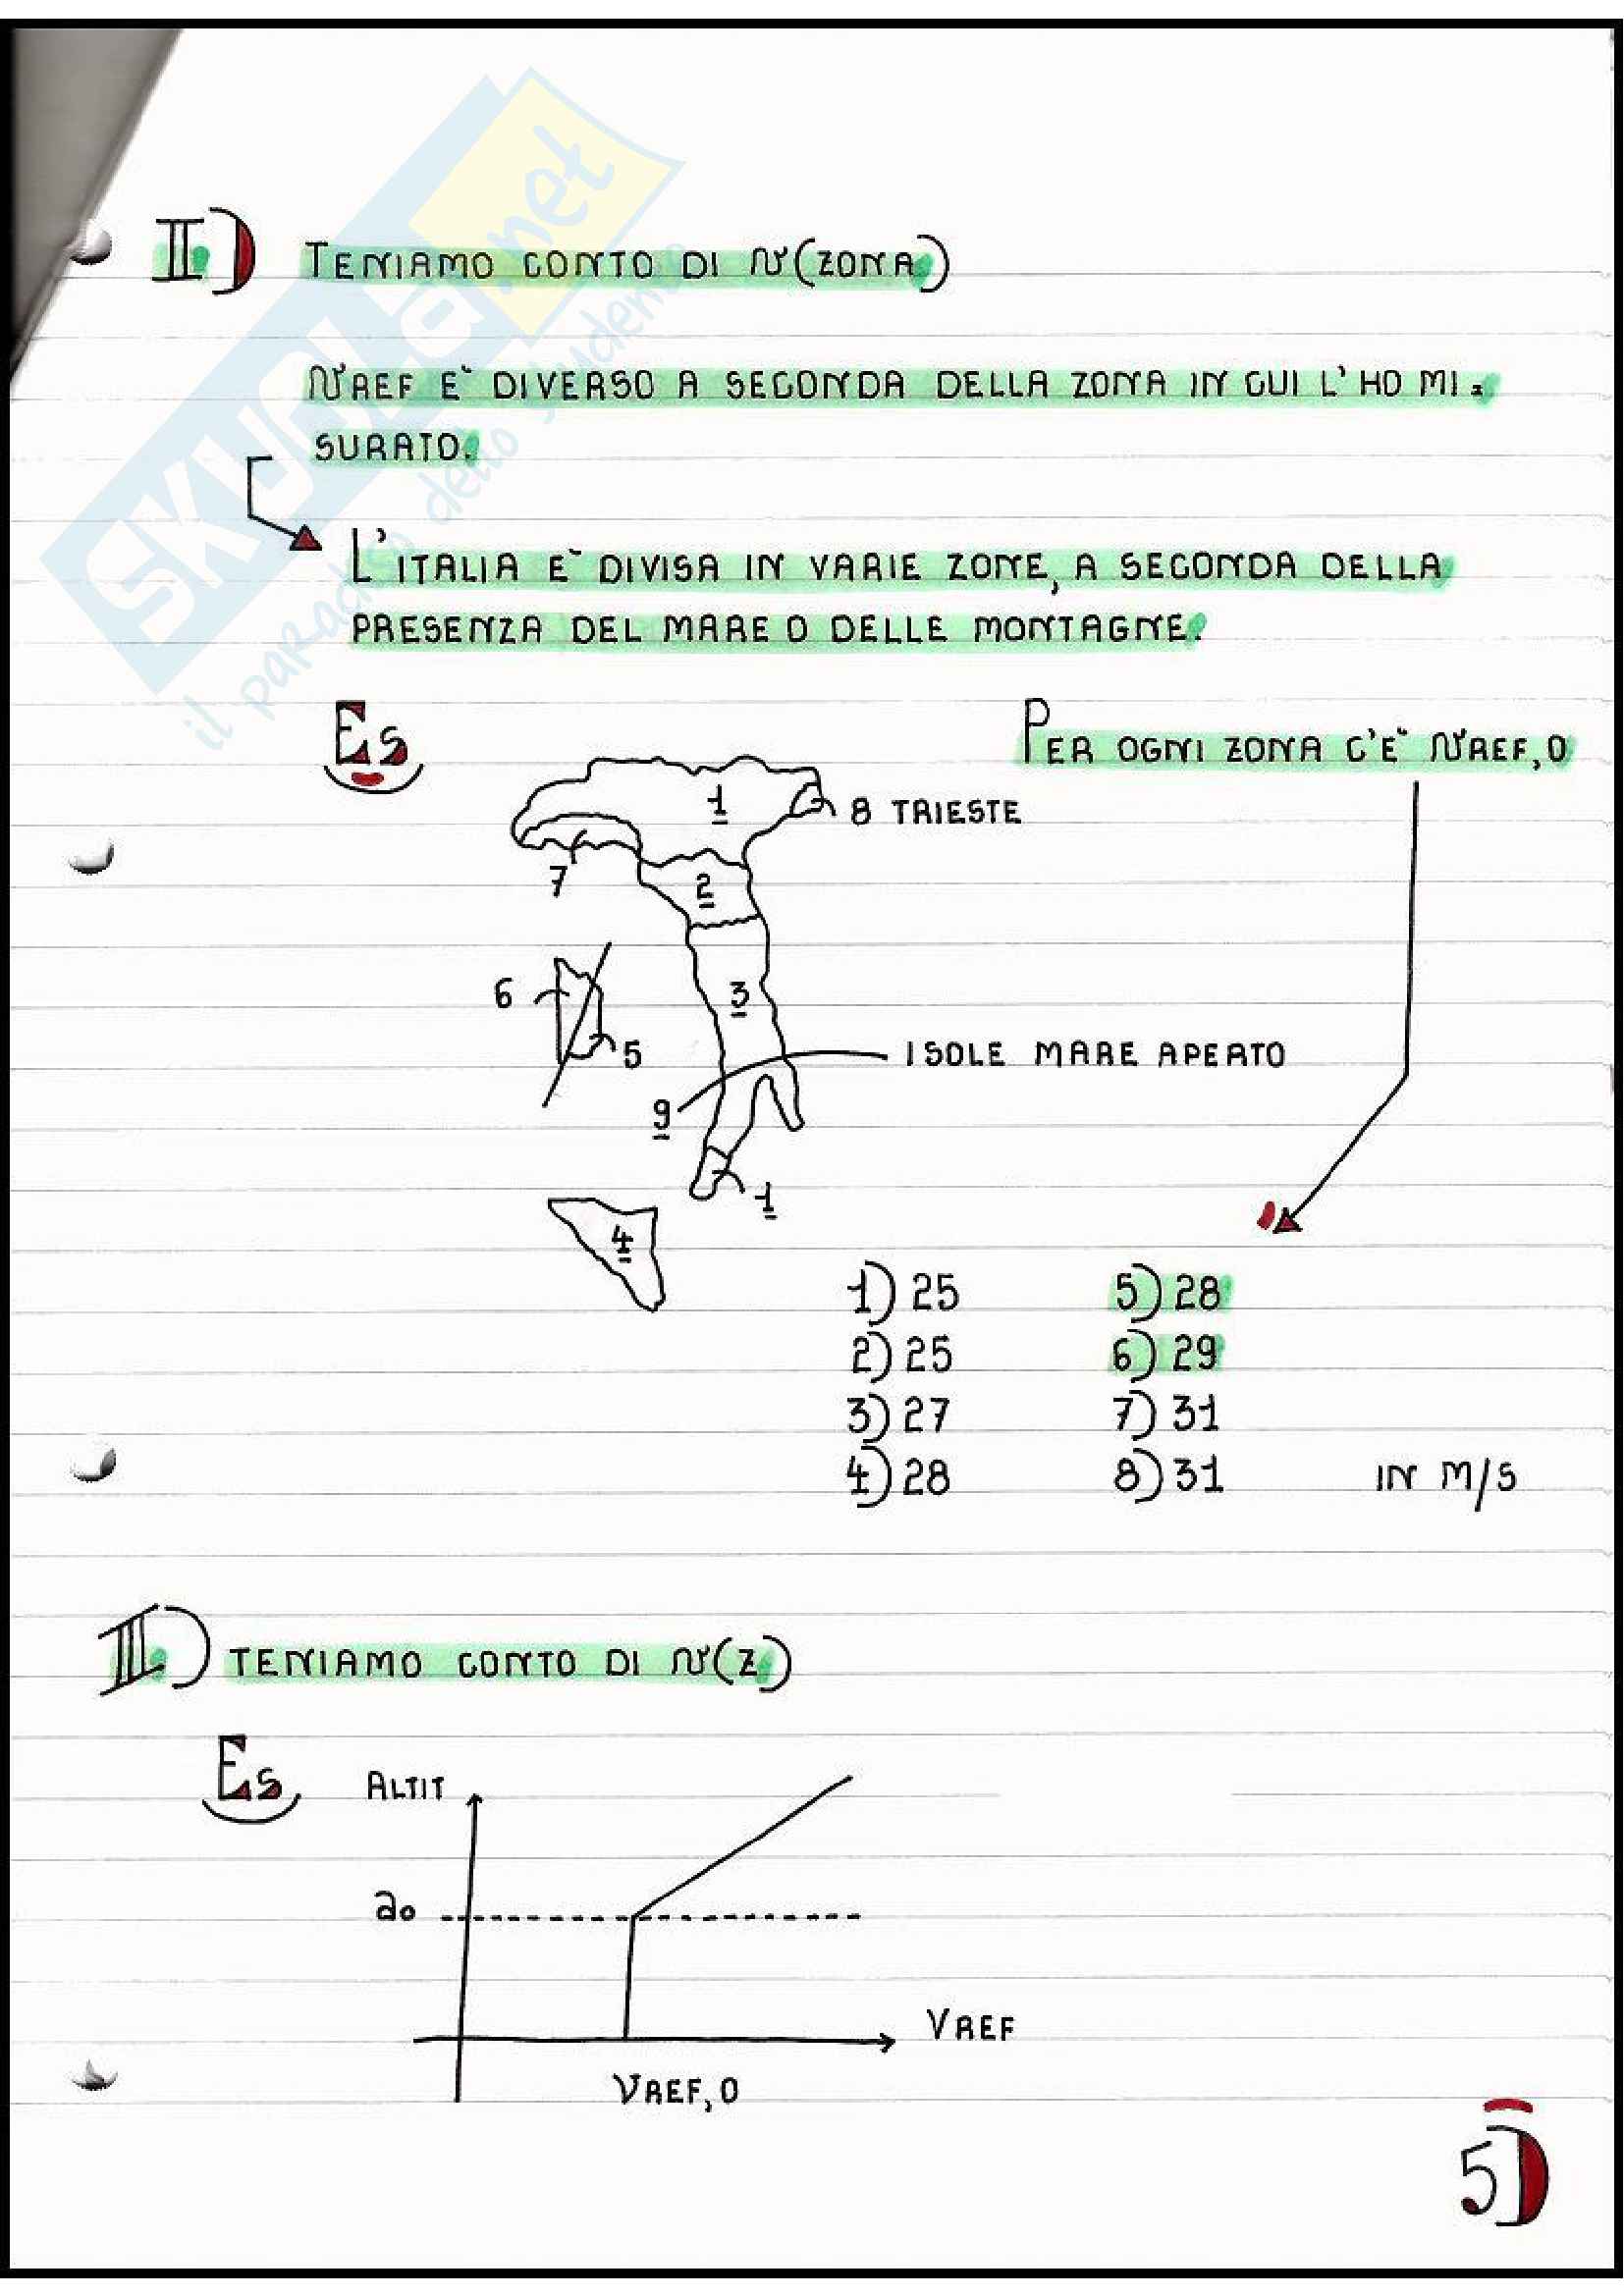 II) TENIAMO CONTO DI v(ZONA)
vREF E' DIVERSO A SECONDA DELLA ZONA IN CUI L'HO MI=
SURATO.
L'ITALIA E' DIVISA IN VARIE ZONE, A SECONDA DELLA
PRESENZA DEL MARE O DELLE MONTAGNE.
Es
PER OGNI ZONA C'E' vREF,0
1
8 TRIESTE
7
2
6
3
5
ISOLE MARE APERTO
9
1
4
1) 25
5) 28
2) 25
6) 29
3) 27
7) 31
4) 28
8) 31
IN M/S
III) TENIAMO CONTO DI v(Z)
Es
ALTIT
a0
VREF
VREF,0
5)
SKUOLA.net
il paradiso dello studente